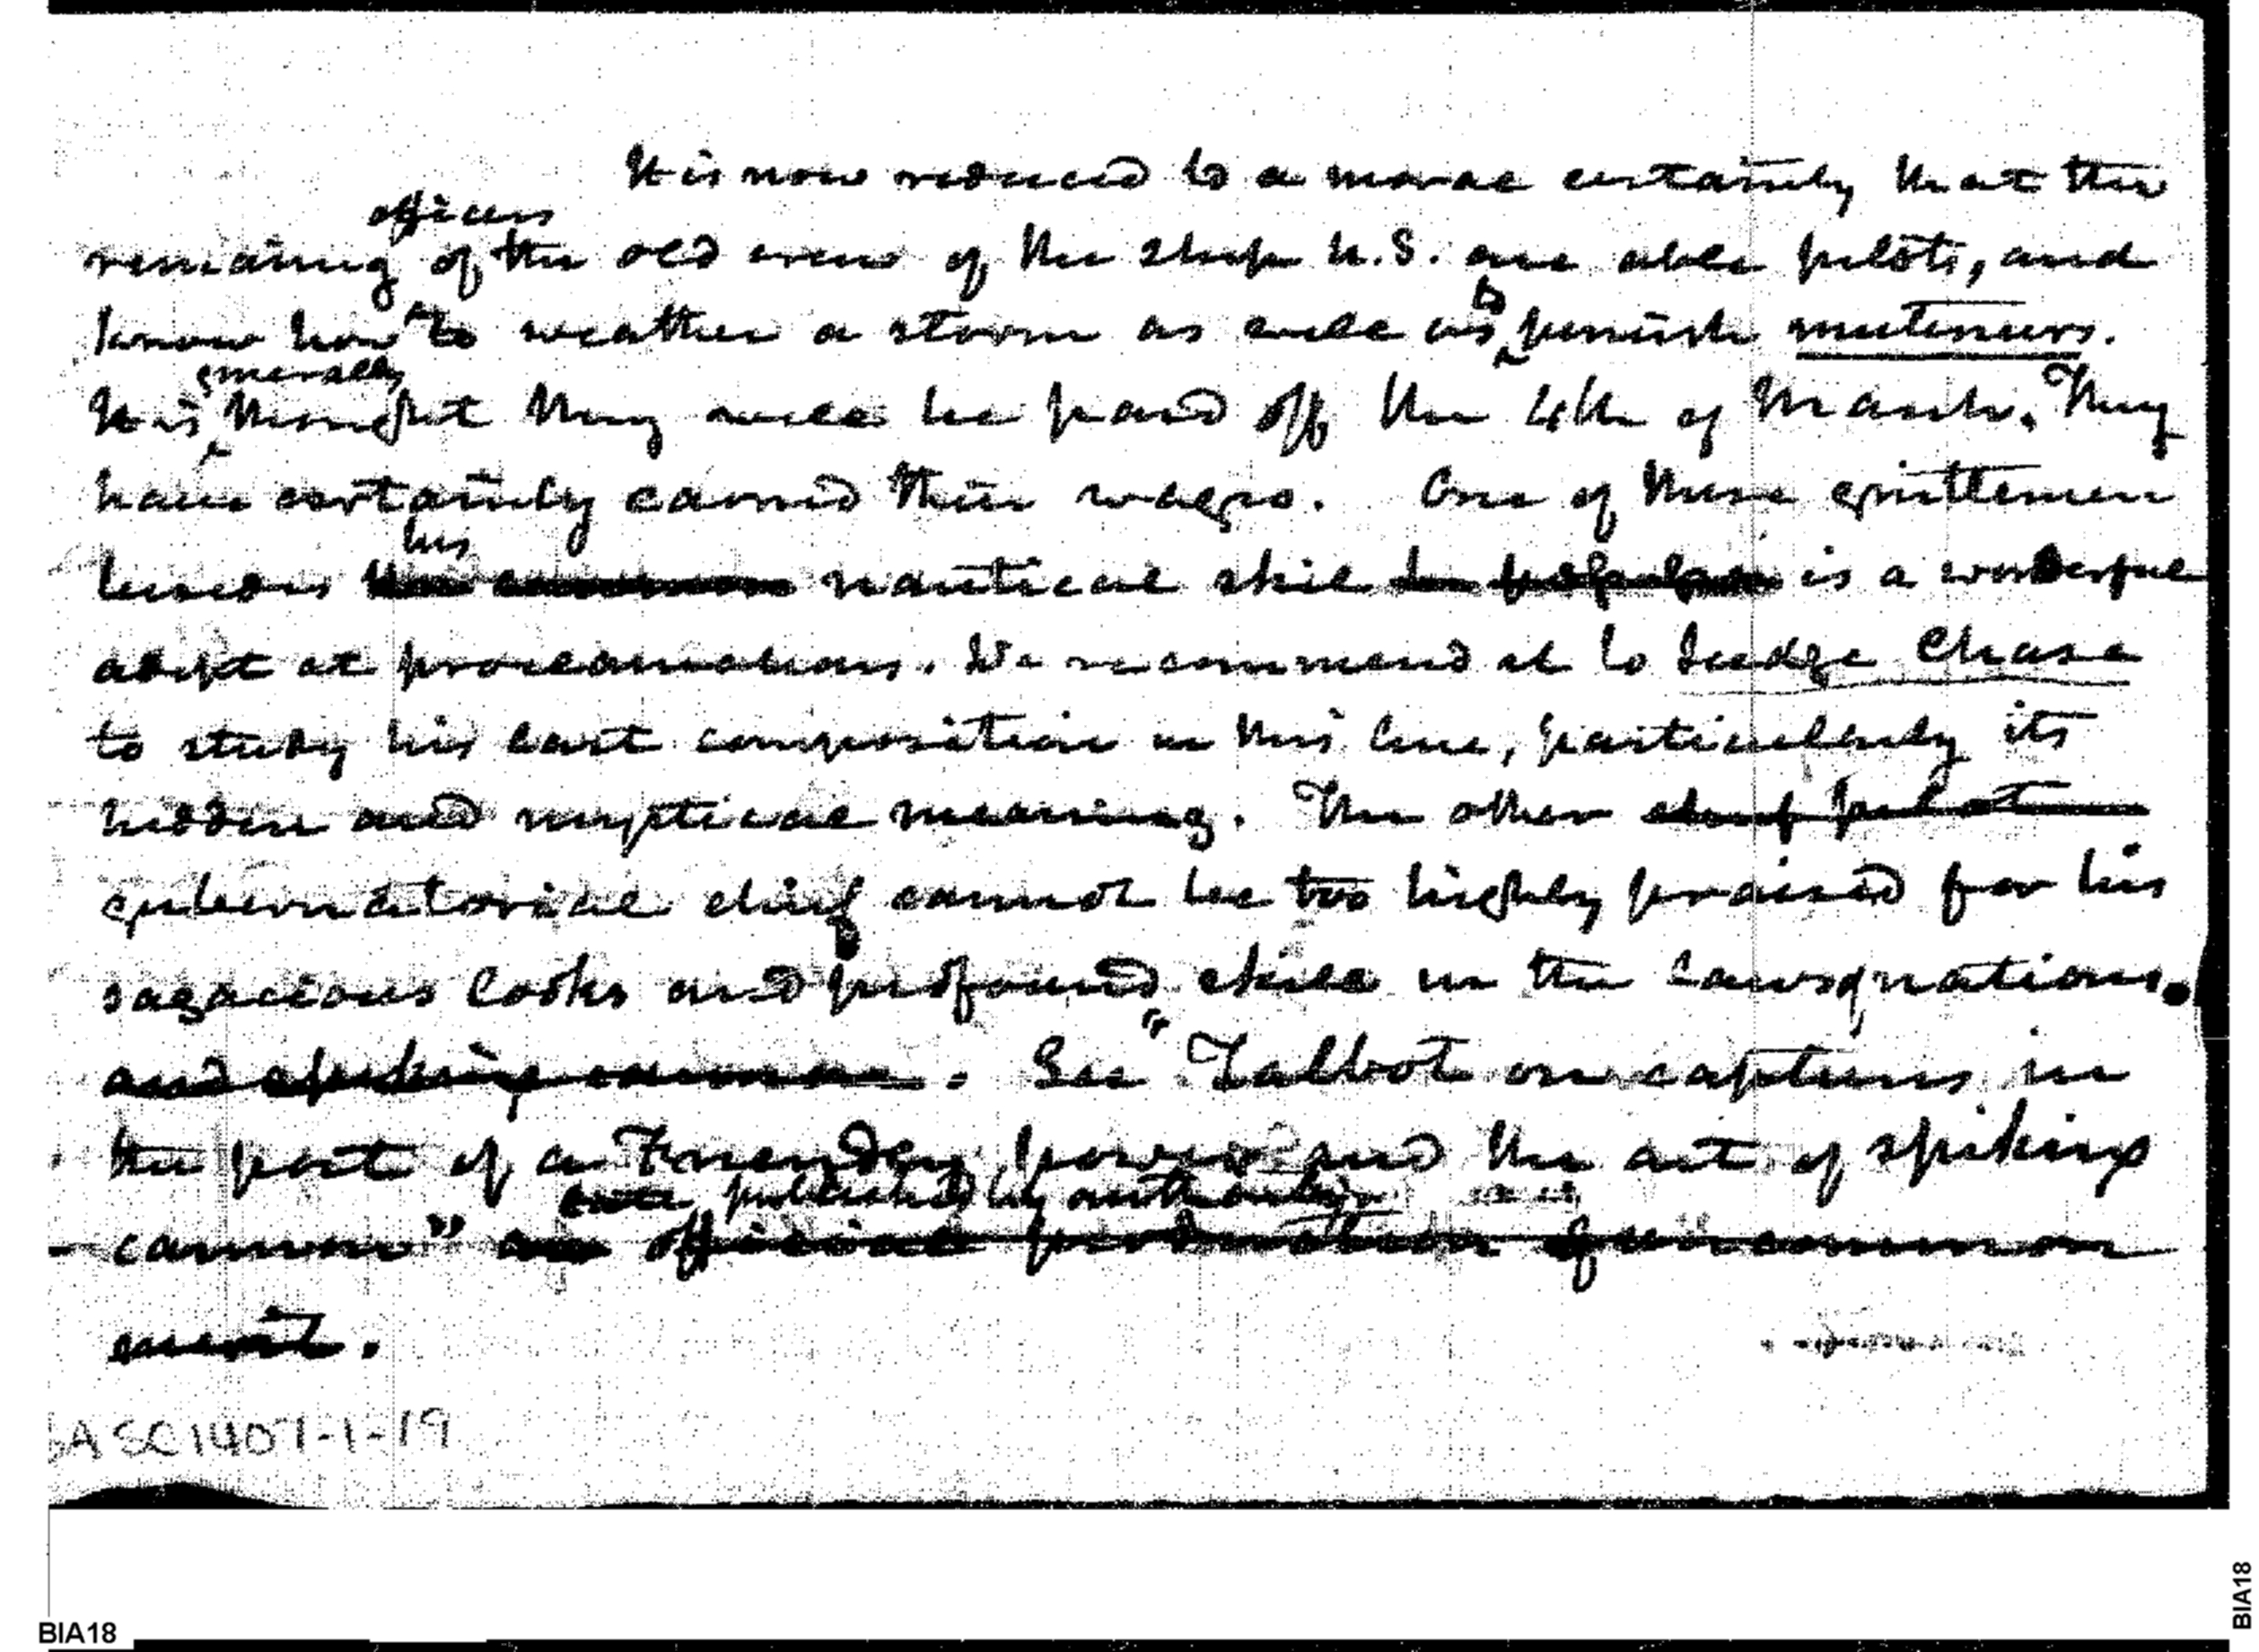 It is now reduced to a moral certainty that the
officers
remaining of the old crew of the ship U.S. are able pilots, and
to
know how to weather a storm as well as punish mutineers.
generally
It is thought they will be paid off the 4th of March. They
have certainly earned their wages. One of these gentlemen
his
besides his common nautical skill is a wonderful
adept at proclamations. We recommend it to Judge Chase
to study his last composition in this line, particularly its
hidden and mystical meaning. The other chief pilot
gubernatorial chief cannot be too highly praised for his
sagacious looks and profound skill in the laws of nations.
and spiking cannon. See "Talbot on captures in
the port of a Friendly power and the art of spiking
published by authority
cannon" an official production of uncommon
merit.
ASC1407-1-19
BIA18
BIA18